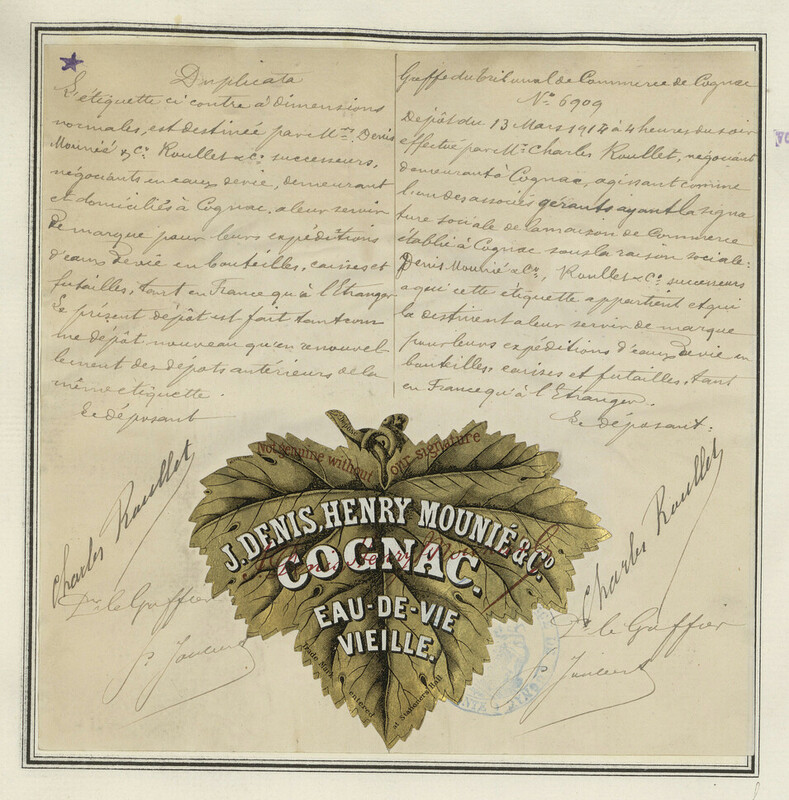 Duplicata
L'étiquette ci contre à dimensions
normales, est destinée par Mrs. Denis
Mounié & Co. Roullet & Co. successeurs,
négociants en eaux de vie, demeurant
et domiciliés à Cognac, a leur servir
de marque pour leurs expéditions
d'eaux de vie en bouteilles, caisses et
futailles, tant en France qu'à l'Etranger
Le présent dépôt est fait tant com
me dépôt nouveau qu'en renouvel-
lement des dépôts antérieurs de la
même étiquette.
Le déposant
Charles Roullet
Pr le Greffier
Greffe du tribunal de Commerce de Cognac
No. 6909
Dépôt du 13 Mars 1914 à 4 heures du soir
effectué par Mr. Charles Roullet, négociant
demeurant à Cognac, agissant comme
l'un des associés gérants ayant la signa
ture sociale de la maison de Commerce
établie à Cognac sous la raison sociale:
Denis Mounié & Co., Roullet & Co. successeurs
a qui cette étiquette appartient et qui
la destinent a leur servir de marque
pour leurs expéditions d'eaux de vie en
bouteilles, caisses et futailles, tant
en France qu'à l'Etranger.
Le déposant:
Charles Roullet
Pr le Greffier
Not genuine without our signature
J. DENIS, HENRY MOUNIÉ & Co.
COGNAC.
EAU-DE-VIE
VIEILLE.
Trade Mark entered at Stationers Hall